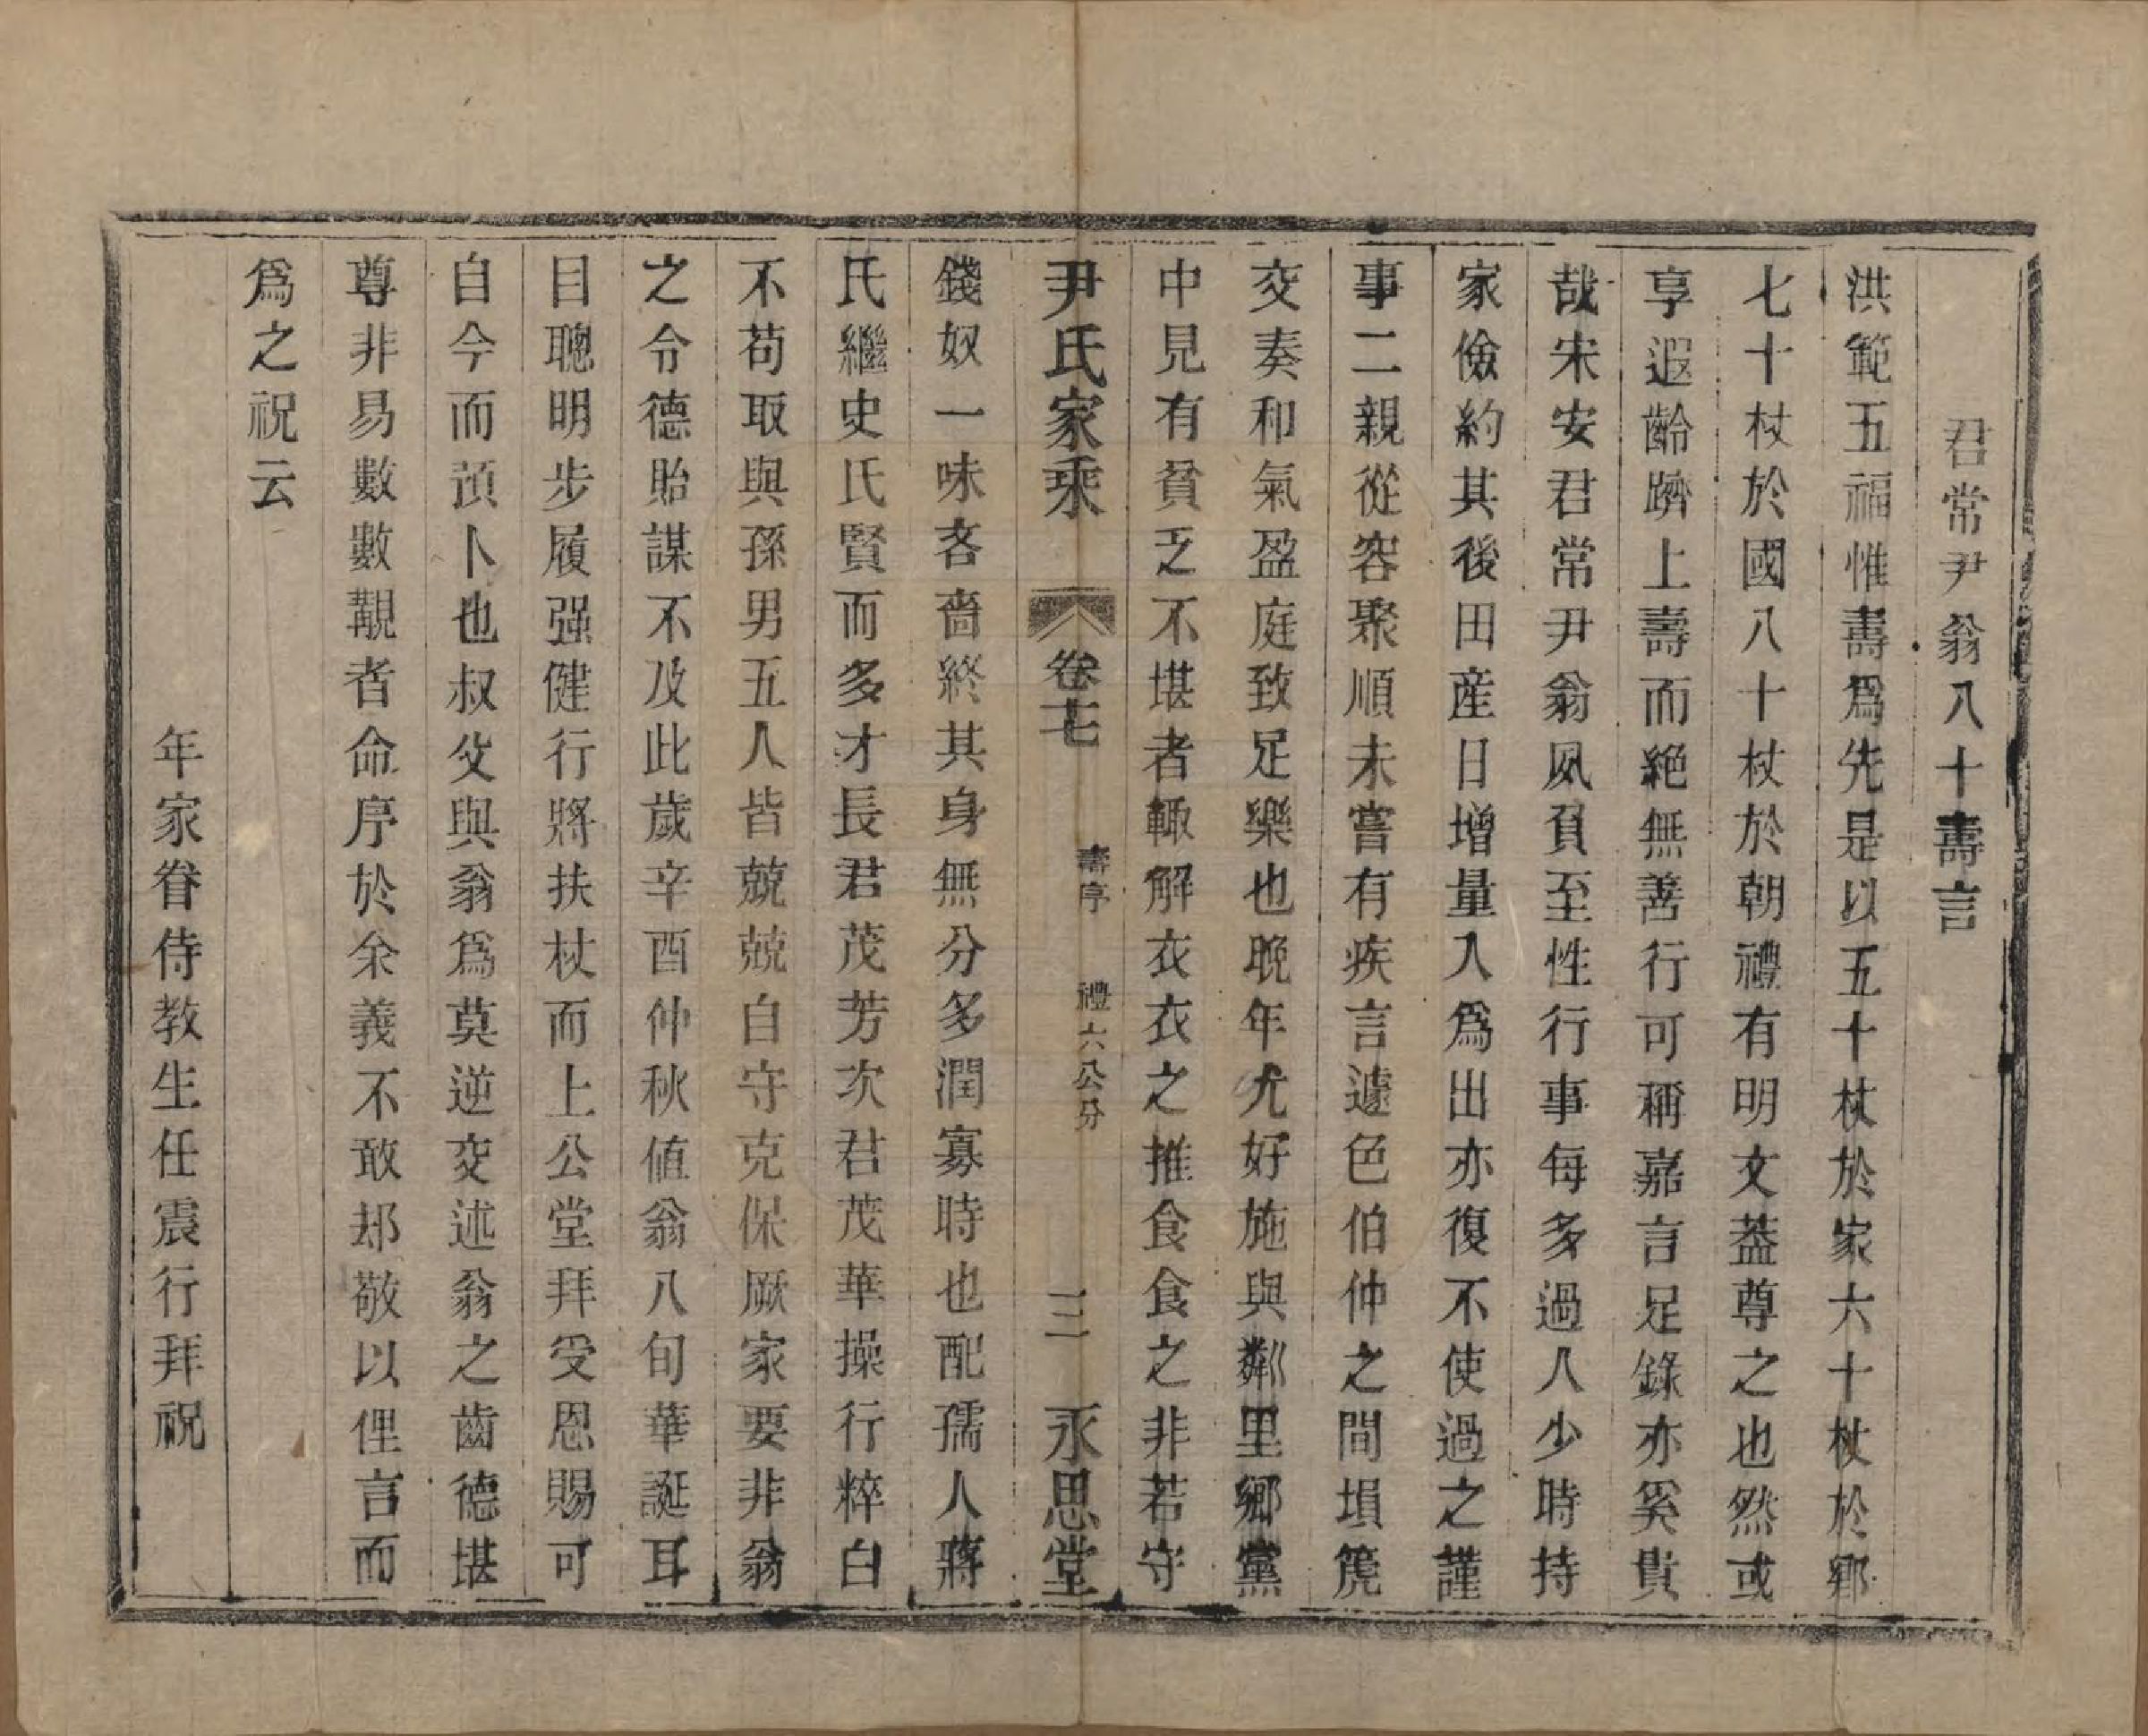 君常尹翁八十壽言
洪範五福惟壽爲先是以五十杖於家六十杖於鄉
七十杖於國八十杖於朝禮有明文葢尊之也然或
享遐齡躋上壽而絕無善行可稱嘉言足錄亦奚貴
哉宋安君常尹翁夙負至性行事每多過人少時持
家儉約其後田産日增量入爲出亦復不使過之謹
事二親從容聚順未嘗有疾言遽色伯仲之間塤篪
交奏和氣盈庭致足樂也晚年尤好施與鄰里鄉黨
中見有貧乏不堪者輙解衣衣之推食食之非若守
尹氏家乘 卷十七 壽序 禮六公分 三 永思堂
錢奴一味吝嗇終其身無分多潤寡時也配孺人蔣
氏繼史氏賢而多才長君茂芳次君茂華操行粹白
不苟取與孫男五人皆兢兢自守克保厥家要非翁
之令德貽謀不及此歲辛酉仲秋值翁八旬華誕耳
目聰明步履强健行將扶杖而上公堂拜受恩賜可
自今而預卜也叔父與翁爲莫逆交述翁之齒德堪
尊非易數數覩者命序於余義不敢却敬以俚言而
爲之祝云
年家眷侍教生任震行拜祝